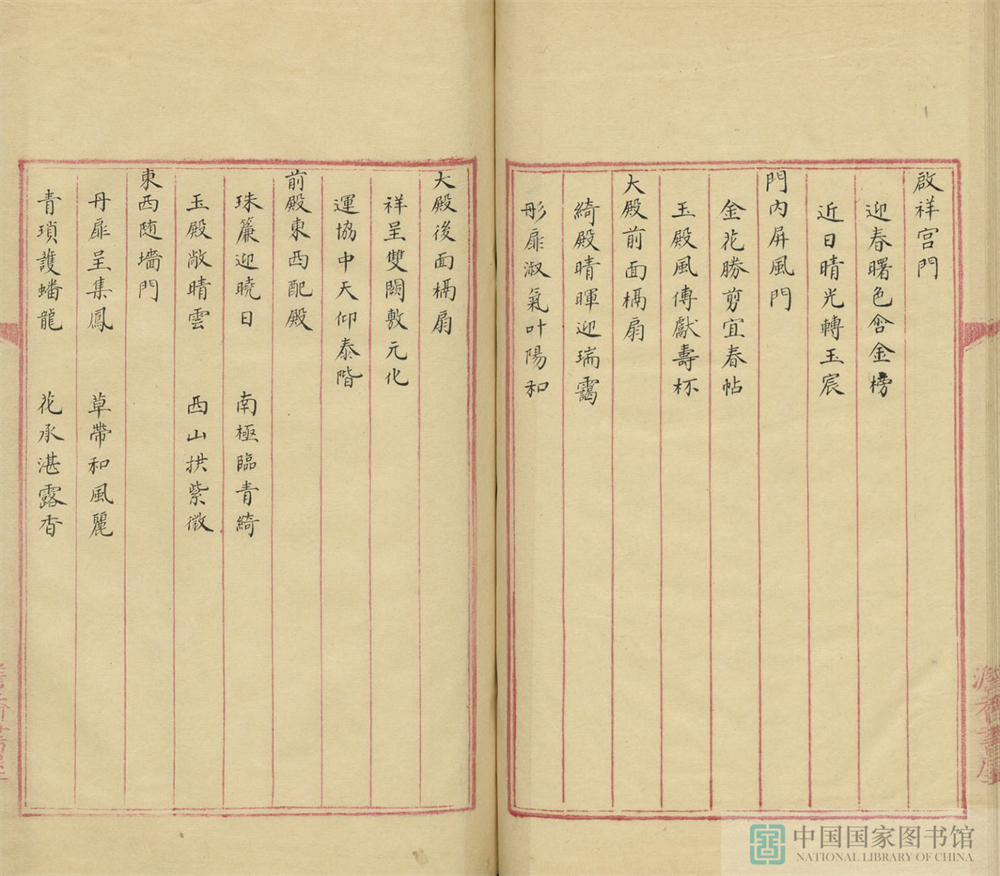 啟祥宮門
迎春曙色含金榜
近日晴光轉玉宸
門內屏風門
金花勝剪宜春帖
玉殿風傳獻壽杯
大殿前面槅扇
綺殿晴暉迎瑞靄
彤扉淑氣叶陽和
大殿後面槅扇
祥呈雙闕敷元化
運協中天仰泰階
前殿東西配殿
珠簾迎曉日 南極臨青綺
玉殿敞晴雲 西山拱紫微
東西随墻門
丹扉呈集鳳 草帶和風麗
青瑣護蟠龍 花承湛露香
中国国家图书馆
NATIONAL LIBRARY OF CHINA